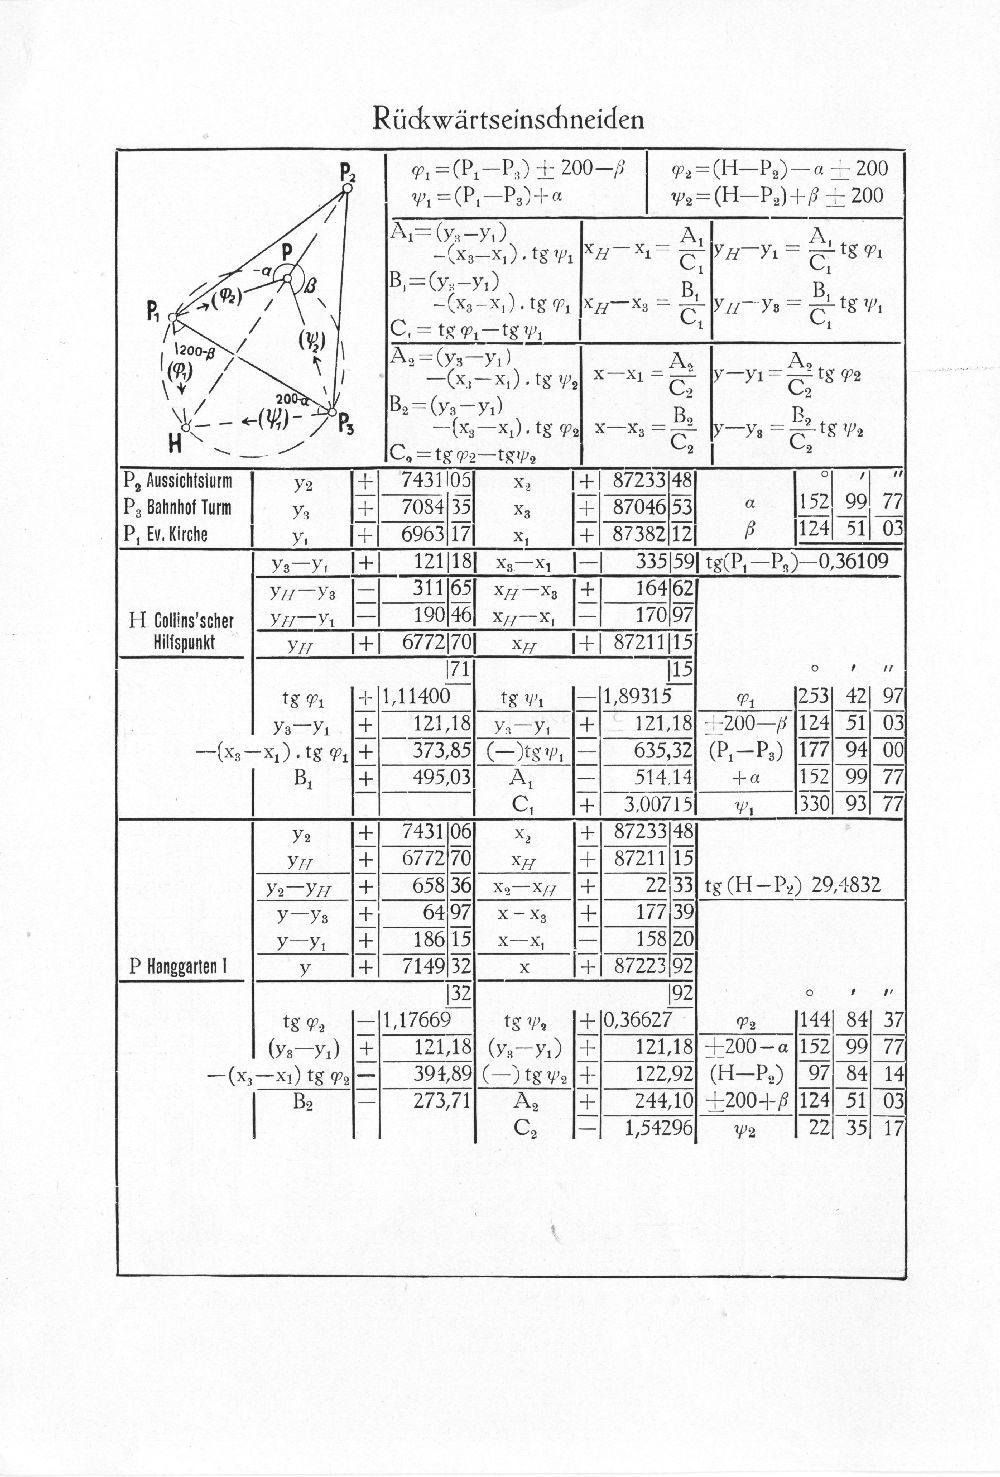 Rückwärtseinschneiden
P₂
P
-α
β
(φ₂)
P₁
(ψ₂)
200-β
(φ₁)
200-α
(ψ₁)
P₃
H
φ₁=(P₁—P₃) ± 200—β
φ₂=(H—P₂)—α ± 200
ψ₁=(P₁—P₃)+α
ψ₂=(H—P₂)+β ± 200
A₁=(y₃—y₁)
–(x₃—x₁) . tg ψ₁
B₁=(y₃—y₁)
–(x₃—x₁) . tg φ₁
C₁ = tg φ₁—tg ψ₁
x_H—x₁ = A₁/C₁
x_H—x₃ = B₁/C₁
y_H—y₁ = A₁/C₁ tg φ₁
y_H—y₃ = B₁/C₁ tg ψ₁
A₂=(y₃—y₁)
—(x₃—x₁) . tg ψ₂
B₂=(y₃—y₁)
—(x₃—x₁) . tg φ₂
C₂=tg φ₂—tgψ₂
x—x₁ = A₂/C₂
x—x₃ = B₂/C₂
y—y₁ = A₂/C₂ tg φ₂
y—y₃ = B₂/C₂ tg ψ₂
P₂ Aussichtsturm y₂ + 7431 05 x₂ + 87233 48 ° ′ ″
P₃ Bahnhof Turm y₃ + 7084 35 x₃ + 87046 53 α 152 99 77
P₁ Ev. Kirche y₁ + 6963 17 x₁ + 87382 12 β 124 51 03
y₃—y₁ + 121 18 x₃—x₁ — 335 59 tg(P₁—P₃)—0,36109
y_H—y₃ — 311 65 x_H—x₃ + 164 62
H Collins'scher y_H—y₁ — 190 46 x_H—x₁ — 170 97
Hilfspunkt y_H + 6772 70 x_H + 87211 15
71 15 ° ′ ″
tg φ₁ + 1,11400 tg ψ₁ — 1,89315 φ₁ 253 42 97
y₃—y₁ + 121,18 y₃—y₁ + 121,18 ±200—β 124 51 03
—(x₃—x₁) . tg φ₁ + 373,85 (—)tgψ₁ — 635,32 (P₁—P₃) 177 94 00
B₁ + 495,03 A₁ — 514.14 +α 152 99 77
C₁ + 3,00715 ψ₁ 330 93 77
y₂ + 7431 06 x₂ + 87233 48
y_H + 6772 70 x_H + 87211 15
y₂—y_H + 658 36 x₂—x_H + 22 33 tg (H—P₂) 29,4832
y—y₃ + 64 97 x–x₃ + 177 39
y—y₁ + 186 15 x—x₁ — 158 20
P Hanggarten I y + 7149 32 x + 87223 92
32 92 ° ′ ″
tg φ₂ — 1,17669 tg ψ₂ + 0,36627 φ₂ 144 84 37
(y₃—y₁) + 121,18 (y₃—y₁) + 121,18 ±200—α 152 99 77
—(x₃—x₁) tg φ₂ — 394,89 (—) tg ψ₂ + 122,92 (H—P₂) 97 84 14
B₂ — 273,71 A₂ + 244,10 ±200+β 124 51 03
C₂ — 1,54296 ψ₂ 22 35 17